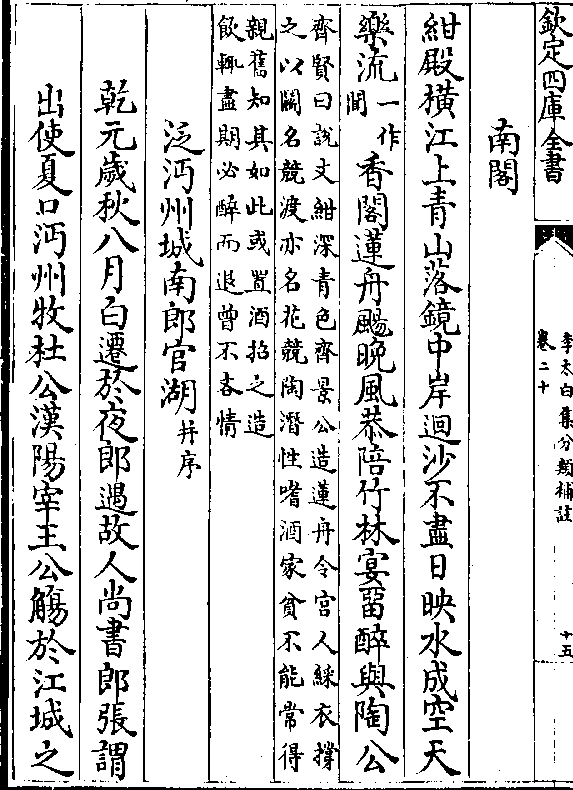 欽定四庫全書
李太白集分類補註
卷二十
十五
南閣
紺殿橫江上青山落鏡中岸迴沙不盡日映水成空天
樂流一作聞香閣蓮舟颺晚風恭陪竹林宴留醉與陶公
齊賢曰說文紺深青色齊景公造蓮舟令宫人綵衣撑
之以鬬名競渡亦名花競陶潛性嗜酒家貧不能常得
親舊知其如此或置酒招之造
飲輒盡期必醉而退曾不吝情
泛沔州城南郎官湖并序
乾元歲秋八月白遷於夜郎遇故人尚書郎張謂
出使夏口沔州牧杜公漢陽宰王公觴於江城之